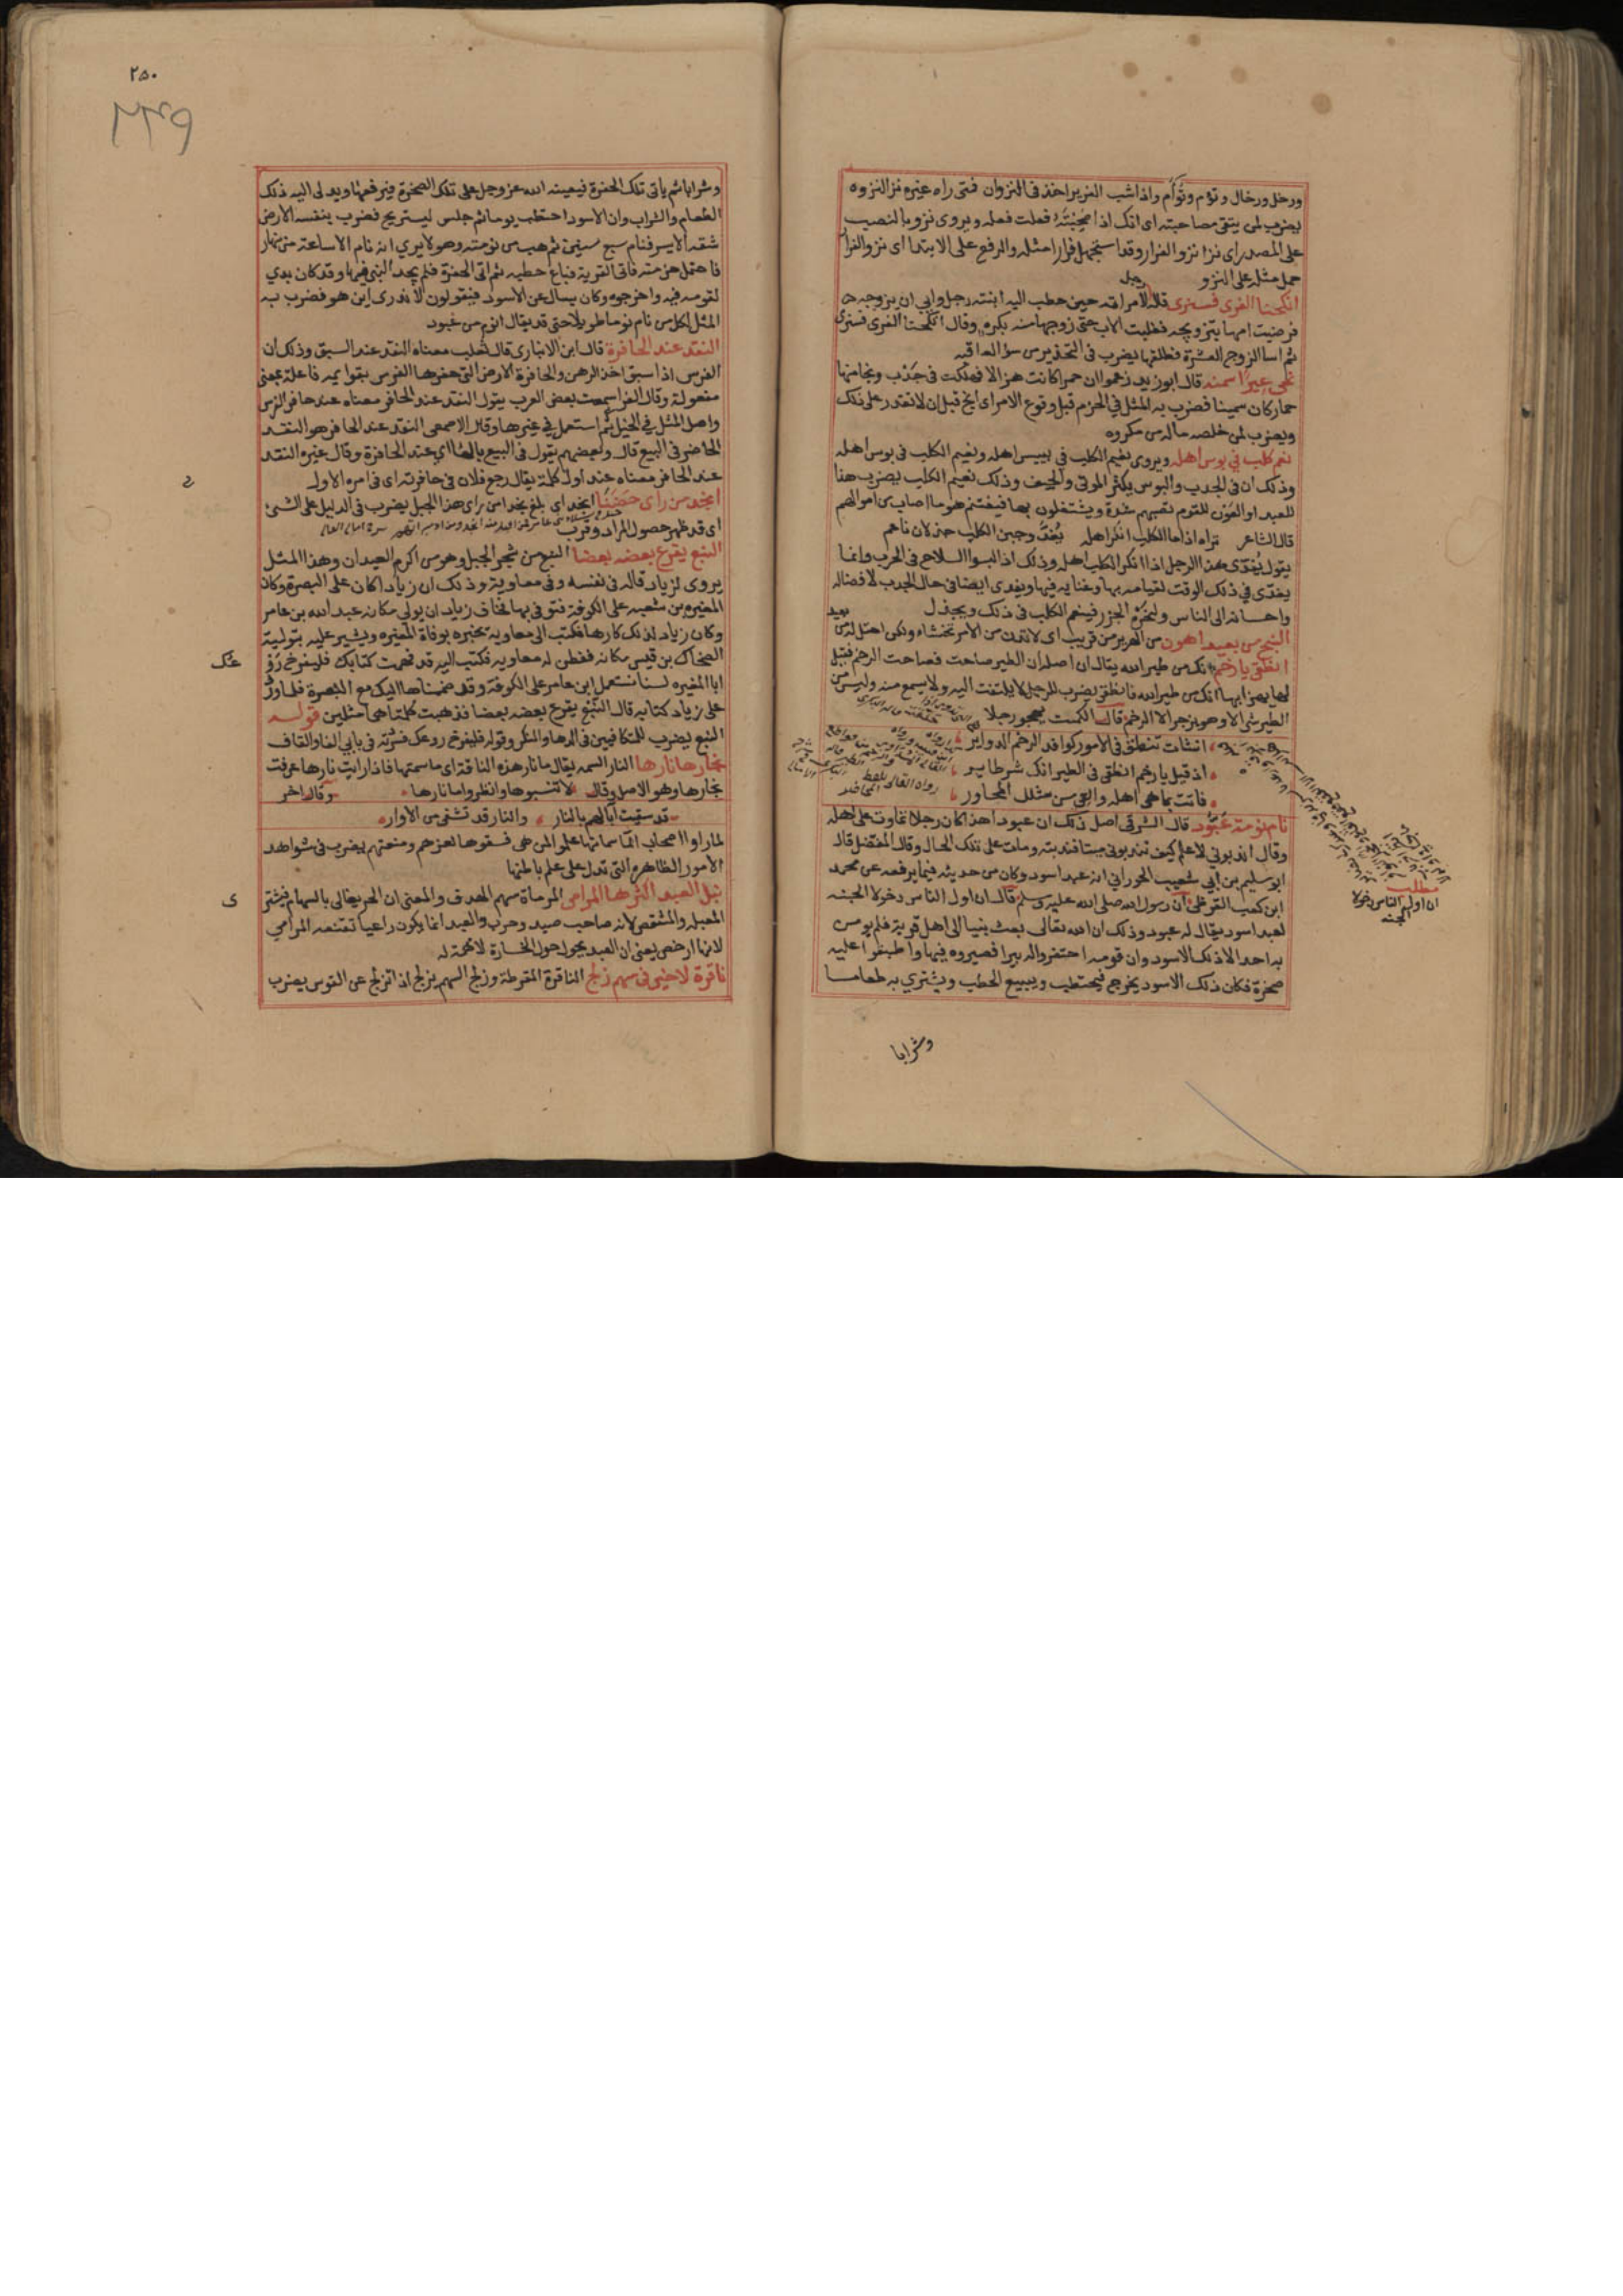 ورخل ورخال وتؤم وتوأم واذا شب الغرير اخذ في النزوان فمتى راه غيره نزا لنزوه
يضرب لمن يتقى مصاحبته اى انك اذا صحبته فعلت فعله ويروى نزو بالنصب
على المصدر اى نزا نزو الفرار وقد استجهل فرارا مثله والرفع على الابتدا اى نزو الفرار
حمل مثله على النزو
انكحنا الفرى فسنرى قاله لامراته حين خطب اليه ابنته رجل وابى ان يزوجه
فرضيت امها بتزويجه فغلبت الاب حتى زوجها منه بكره وقال انكحنا الفرى فسنرى
ثم اسا الزوج العشرة فطلقها يضرب في التحذير من سؤ العاقبه
نجى عيرا سمنه قال ابو زيد زعموا ان حمرا كانت هزالا فهلكت في جدب ونجا منها
حمار كان سمينا فضرب به المثل في الحزم قبل وقوع الامر اى انج قبل ان لا تقدر على ذلك
ويضرب لمن خلصه ماله من مكروه
نعم كلب في بوس اهله ويروى نعيم الكلب في بييس اهله ونعيم الكلب في بوس اهله
وذلك ان في الجدب والبوس يكثر الموتى والجيف وذلك نعيم الكلب يضرب هذا
للعبد او العون للقوم تصيبهم شدة ويشتغلون بها فيغتنم هو ما اصاب من اموالهم
قال الشاعر تراه اذا ما الكلب انكر اهله يُفدّى وحين الكلب جذلان ناعم
يقول يُفدّى هذا الرجل اذا انكر الكلب اهله وذلك اذا لبسوا السلاح في الحرب وانما
يفدّى في ذلك الوقت لقيامه بها وغنايه فيها ويفدى ايضا في حال الجدب لافضاله
واحسانه الى الناس ولنحره الجزر فينعم الكلب في ذلك ويجذل
النبح من بعيد اهون من الهرير من قريب اى لا تدن من الامر تخشاه ولكن احتل له من بعيد
انطقى يا رخم انك من طير الله يقال ان اصله ان الطير صاحت فصاحت الرخم فقيل
لها يهزا بها انك من طير الله فانطقى يضرب للرجل لا يلتفت اليه ولا يسمع منه وليس من
الطير شى الا وهو يزجر الا الرخم قال الكميت يهجو رجلا
انشات تنطق في الامور كوافد الرخم الدواير
اذ قيل يا رخم انطقى في الطير انك شر طاير
فاتت بما هى اهله والعى من مثلك المحاور
رواه القالى بلفظ
نام نومة عَبُّود قال الشرقى اصل ذلك ان عبودا هذا كان رجلا تماوت على اهله
وقال اندبونى لاعلم كيف تندبونى ميتا فندبته ومات على تلك الحال وقال المفضل قال
ابو سليم بن ابى شعيب الحورانى انه عبد اسود وكان من حديثه فيما يرفعه عن محمد
ابن كعب القرظى ان رسول الله صلى الله عليه وسلم قال ان اول الناس دخولا الجنه
لعبد اسود يقال له عبود وذلك ان الله تعالى بعث نبيا الى اهل قرية فلم يومن
به احد الا ذلك الاسود وان قومه احتفروا له بيرا فصيروه فيها واطبقوا عليه
صخرة فكان ذلك الاسود يخرج فيحتطب ويبيع الحطب ويشترى به طعاما
وشرابا
مطلب
ان اول الناس دخولا
الجنه
٢٥٠
٢٣٩
وشرابا ثم ياتى تلك الحفرة فيعينه الله عز وجل على تلك الصخرة فيرفعها ويدلى اليه ذلك
الطعام والشراب وان الاسود احتطب يوما ثم جلس ليستريح فضرب بنفسه الارض
شقه الايسر فنام سبع سنين ثم هب من نومته وهو لا يرى انه نام الا ساعة من نهار
فاحتمل حزمته فاتى القرية فباع حطبه ثم اتى الحفرة فلم يجد النبى فيها وقد كان بدي
لقومه فيه واخرجوه وكان يسال عن الاسود فيقولون لا ندرى اين هو فضرب به
المثل لكل من نام نوما طويلا حتى قد يقال انوم من عبود
النقد عند الحافرة قال ابن الانبارى قال ثعلب معناه النقد عند السبق وذلك ان
الفرس اذا سبق اخذ الرهن والحافرة الارض التى حفرها الفرس بقوايمه فاعلة بمعنى
مفعولة وقال الفرا سمعت بعض العرب يقول النقد عند الحافر معناه عند حافر الفرس
واصل المثل في الخيل ثم استعمل في غيرها وقال الاصمعى النقد عند الحافر هو النقد
الحاضر في البيع قال وبعضهم يقول في البيع بالها اى عند الحافرة وقال غيره النقد
عند الحافر معناه عند اول كلمة يقال رجع فلان في حافرته اى في امره الاول
انجد من راى حَضَنًا انجد اى بلغ نجدا من راى هذا الجبل يضرب في الدليل على الشئ
اى قد ظهر حصول المراد وقرب
النبع يقرع بعضه بعضا النبع من شجر الجبل وهو من اكرم العيدان وهذا المثل
يروى لزياد قاله في نفسه وفى معاوية وذلك ان زيادا كان على البصرة وكان
المغيرة بن شعبه على الكوفة فتوفى بها فخاف زياد ان يولى مكانه عبد الله بن عامر
وكان زياد لذلك كارها فكتب الى معاوية يخبره بوفاة المغيره ويشير عليه بتولية
الضحاك بن قيس مكانه ففطن له معاوية فكتب اليه قد فهمت كتابك فليفرخ روعك
ابا المغيره لسنا نستعمل ابن عامر على الكوفة وقد ضممناها اليك مع البصرة فلما ورد
على زياد كتابه قال النبع يقرع بعضه بعضا فذهبت كلمتاهما مثلين قوله
النبع يضرب للمتكافيين في الدها والمكر وقوله فليفرخ روعك فسرته في بابى الفا والقاف
نجارها نارها النار السمه يقال ما نار هذه الناقة اى ما سمتها فاذا رايت نارها عرفت
نجارها وهو الاصل وقال لا تنسبوها وانظروا ما نارها وقال اخر
قد سقيت آبالهم بالنار والنار قد تشفى من الاوار
لما راوا اصحاب الما سماتها علموا لمن هى فسقوها لعزهم ومنعتهم يضرب في شواهد
الامور الظاهره التى تدل على علم باطنها
نبل العبد اكثرها المرامى المرماة سهم الهدف والمعنى ان الحر يغالى بالسهام فيشترى
المعبلة والمشقص لانه صاحب صيد وحرب والعبد انما يكون راعيا تقنعه المرامى
لانها ارخص يعنى ان العبد يجول حول الخسارة لا همة له
ناقرة لا خير في سهم زلج الناقرة المقرطة وزلج السهم يزلج اذا انزلج عن القوس يضرب